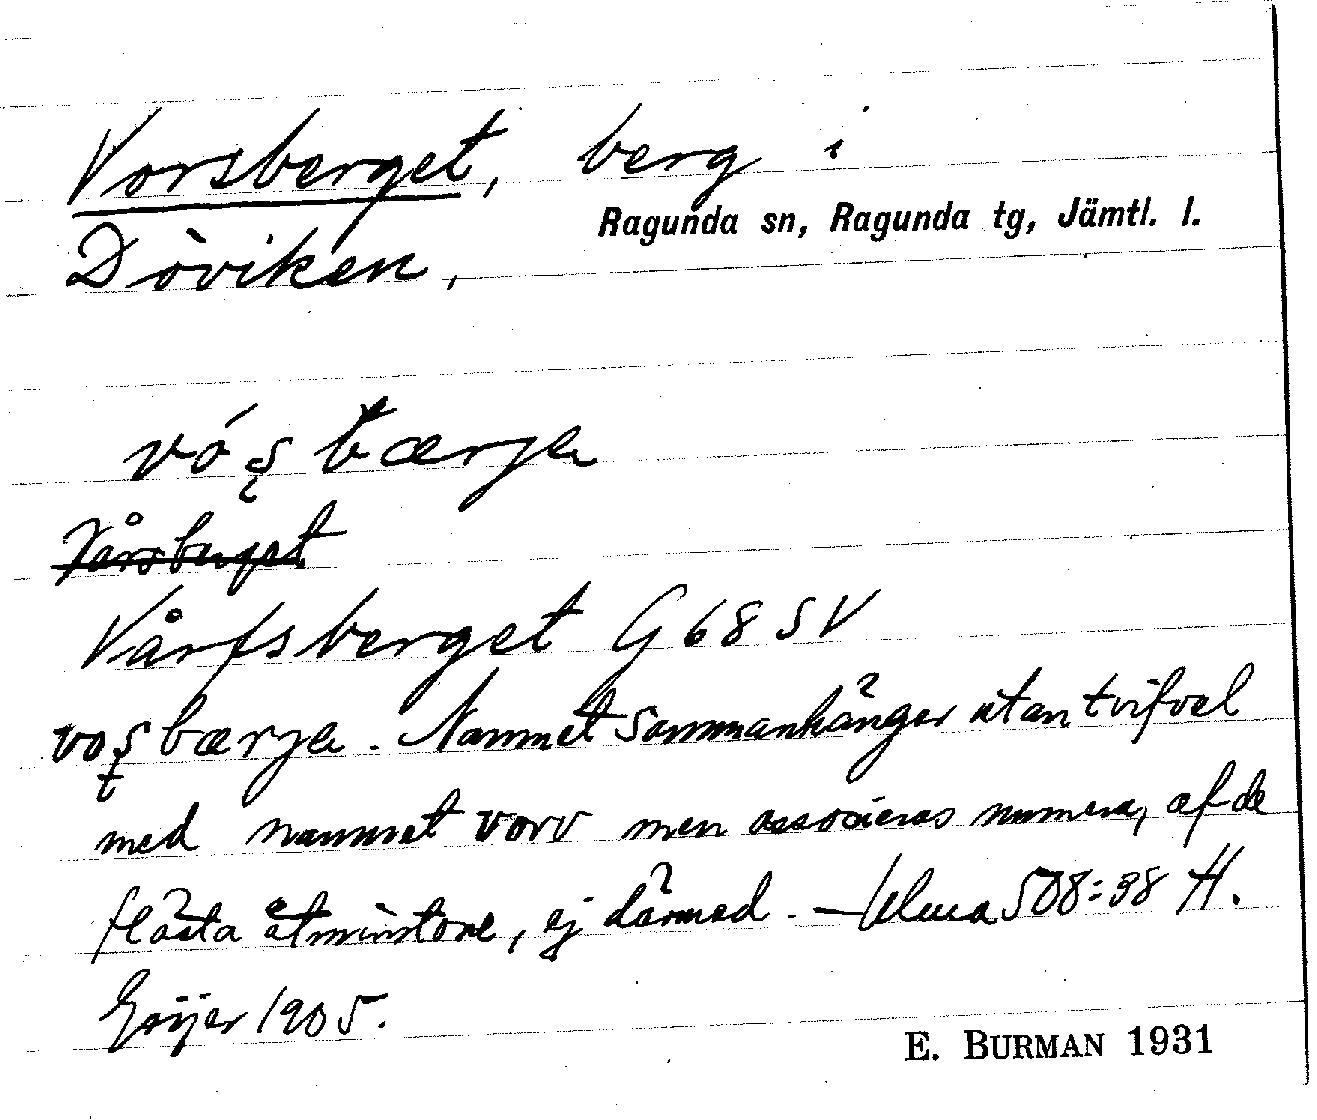 Vorsberget, berg i
Ragunda sn, Ragunda tg, Jämtl. l.
Döviken,
vó̜ʂbærja
Vårsberget
Vårfsberget G 68 SV
voʂbærja. Namnet sammanhänger utan tvifvel
med namnet vorv men associeras numera, af de
flästa åtminstone, ej därmed. – Ulma 508:38 H.
Geijer 1905.
E. BURMAN 1931